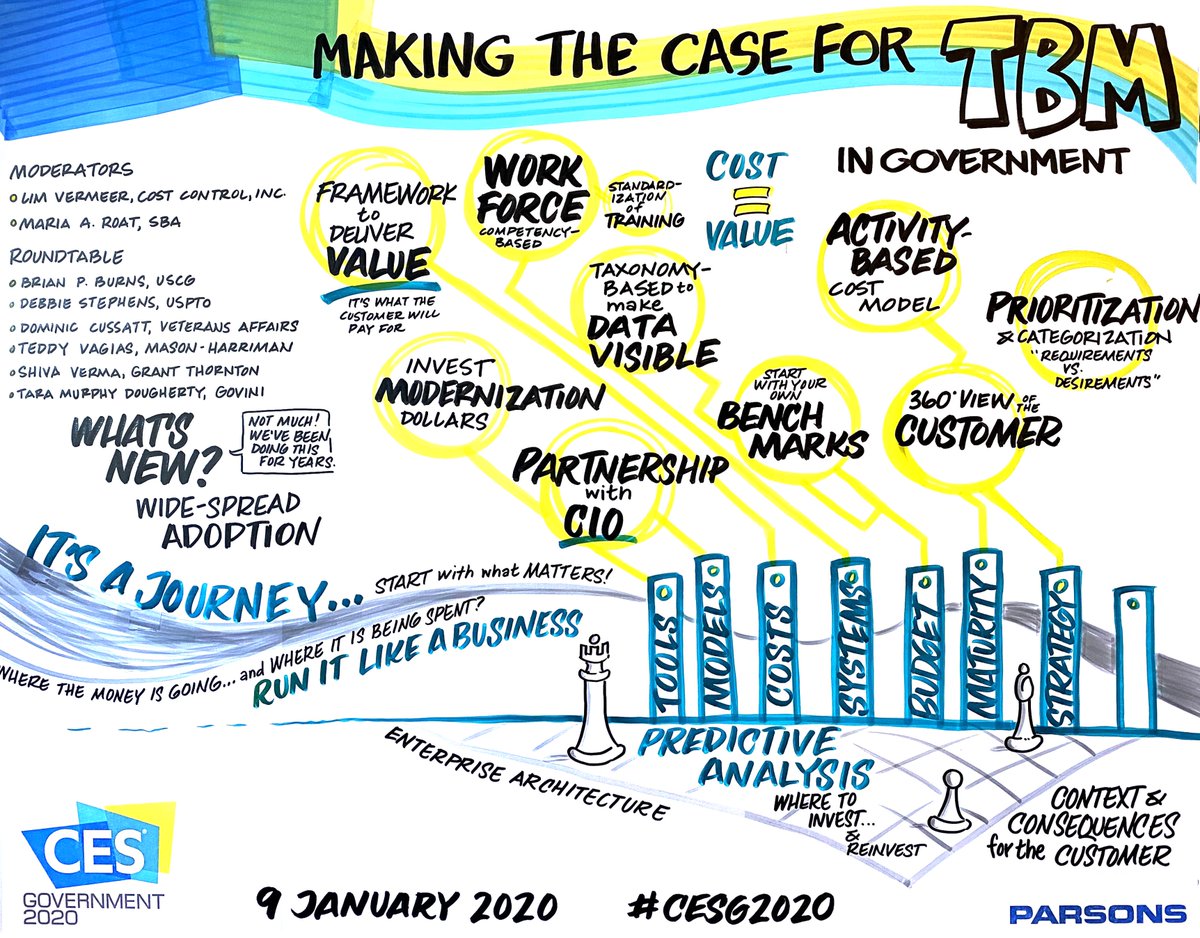 MAKING THE CASE FOR TBM
IN GOVERNMENT
MODERATORS
LIM VERMEER, COST CONTROL, INC.
MARIA A. ROAT, SBA
ROUNDTABLE
BRIAN P. BURNS, USCG
DEBBIE STEPHENS, USPTO
DOMINIC CUSSATT, VETERANS AFFAIRS
TEDDY VAGIAS, MASON-HARRIMAN
SHIVA VERMA, GRANT THORNTON
TARA MURPHY DOUGHERTY, GOVINI
WHAT'S
NEW?
NOT MUCH!
WE'VE BEEN
DOING THIS
FOR YEARS.
WIDE-SPREAD
ADOPTION
FRAMEWORK
to
DELIVER
VALUE
IT'S WHAT THE
CUSTOMER WILL
PAY FOR
WORK
FORCE
COMPETENCY-
BASED
STANDARD-
IZATION
of
TRAINING
COST
=
VALUE
TAXONOMY-
BASED to
make
DATA
VISIBLE
ACTIVITY-
BASED
COST
MODEL
PRIORITIZATION
& CATEGORIZATION
"REQUIREMENTS
VS.
DESIREMENTS"
INVEST
MODERNIZATION
DOLLARS
START
WITH YOUR
OWN
BENCH
MARKS
360° VIEW OF THE
CUSTOMER
PARTNERSHIP
with
CIO
IT'S A JOURNEY...
START with what MATTERS!
WHERE THE MONEY IS GOING... and WHERE IT IS BEING SPENT?
RUN IT LIKE A BUSINESS
TOOLS
MODELS
COSTS
SYSTEMS
BUDGET
MATURITY
STRATEGY
ENTERPRISE ARCHITECTURE
PREDICTIVE
ANALYSIS
WHERE TO
INVEST...
&
REINVEST
CONTEXT &
CONSEQUENCES
for the CUSTOMER
CES®
GOVERNMENT
2020
9 JANUARY 2020
#CESG2020
PARSONS